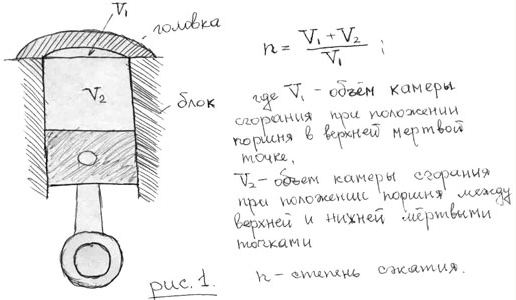 V₁
головка
V₂
блок
рис. 1.
n = (V₁ + V₂) / V₁ ;
где V₁ - объём камеры
сгорания при положении
поршня в верхней мертвой
точке,
V₂ - объем камеры сгорания
при положение поршня между
верхней и нижней мёртвыми
точками
n - степень сжатия.